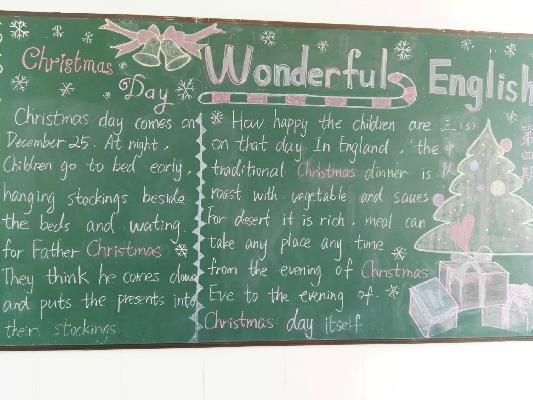 Christmas
Day
Wonderful English
Christmas day comes on
December 25. At night,
Children go to bed early,
hanging stockings beside
the beds and wating
for Father Christmas
They think he comes down
and puts the presents into
their stockings.
How happy the children are
on that day. In England, the
traditional Christmas dinner is
roast with vegetable and saues
For desert it is rich, meal can
take any place any time
from the evening of Christmas
Eve to the evening of
Christmas day itself
三(3)
中
队
第
四
期